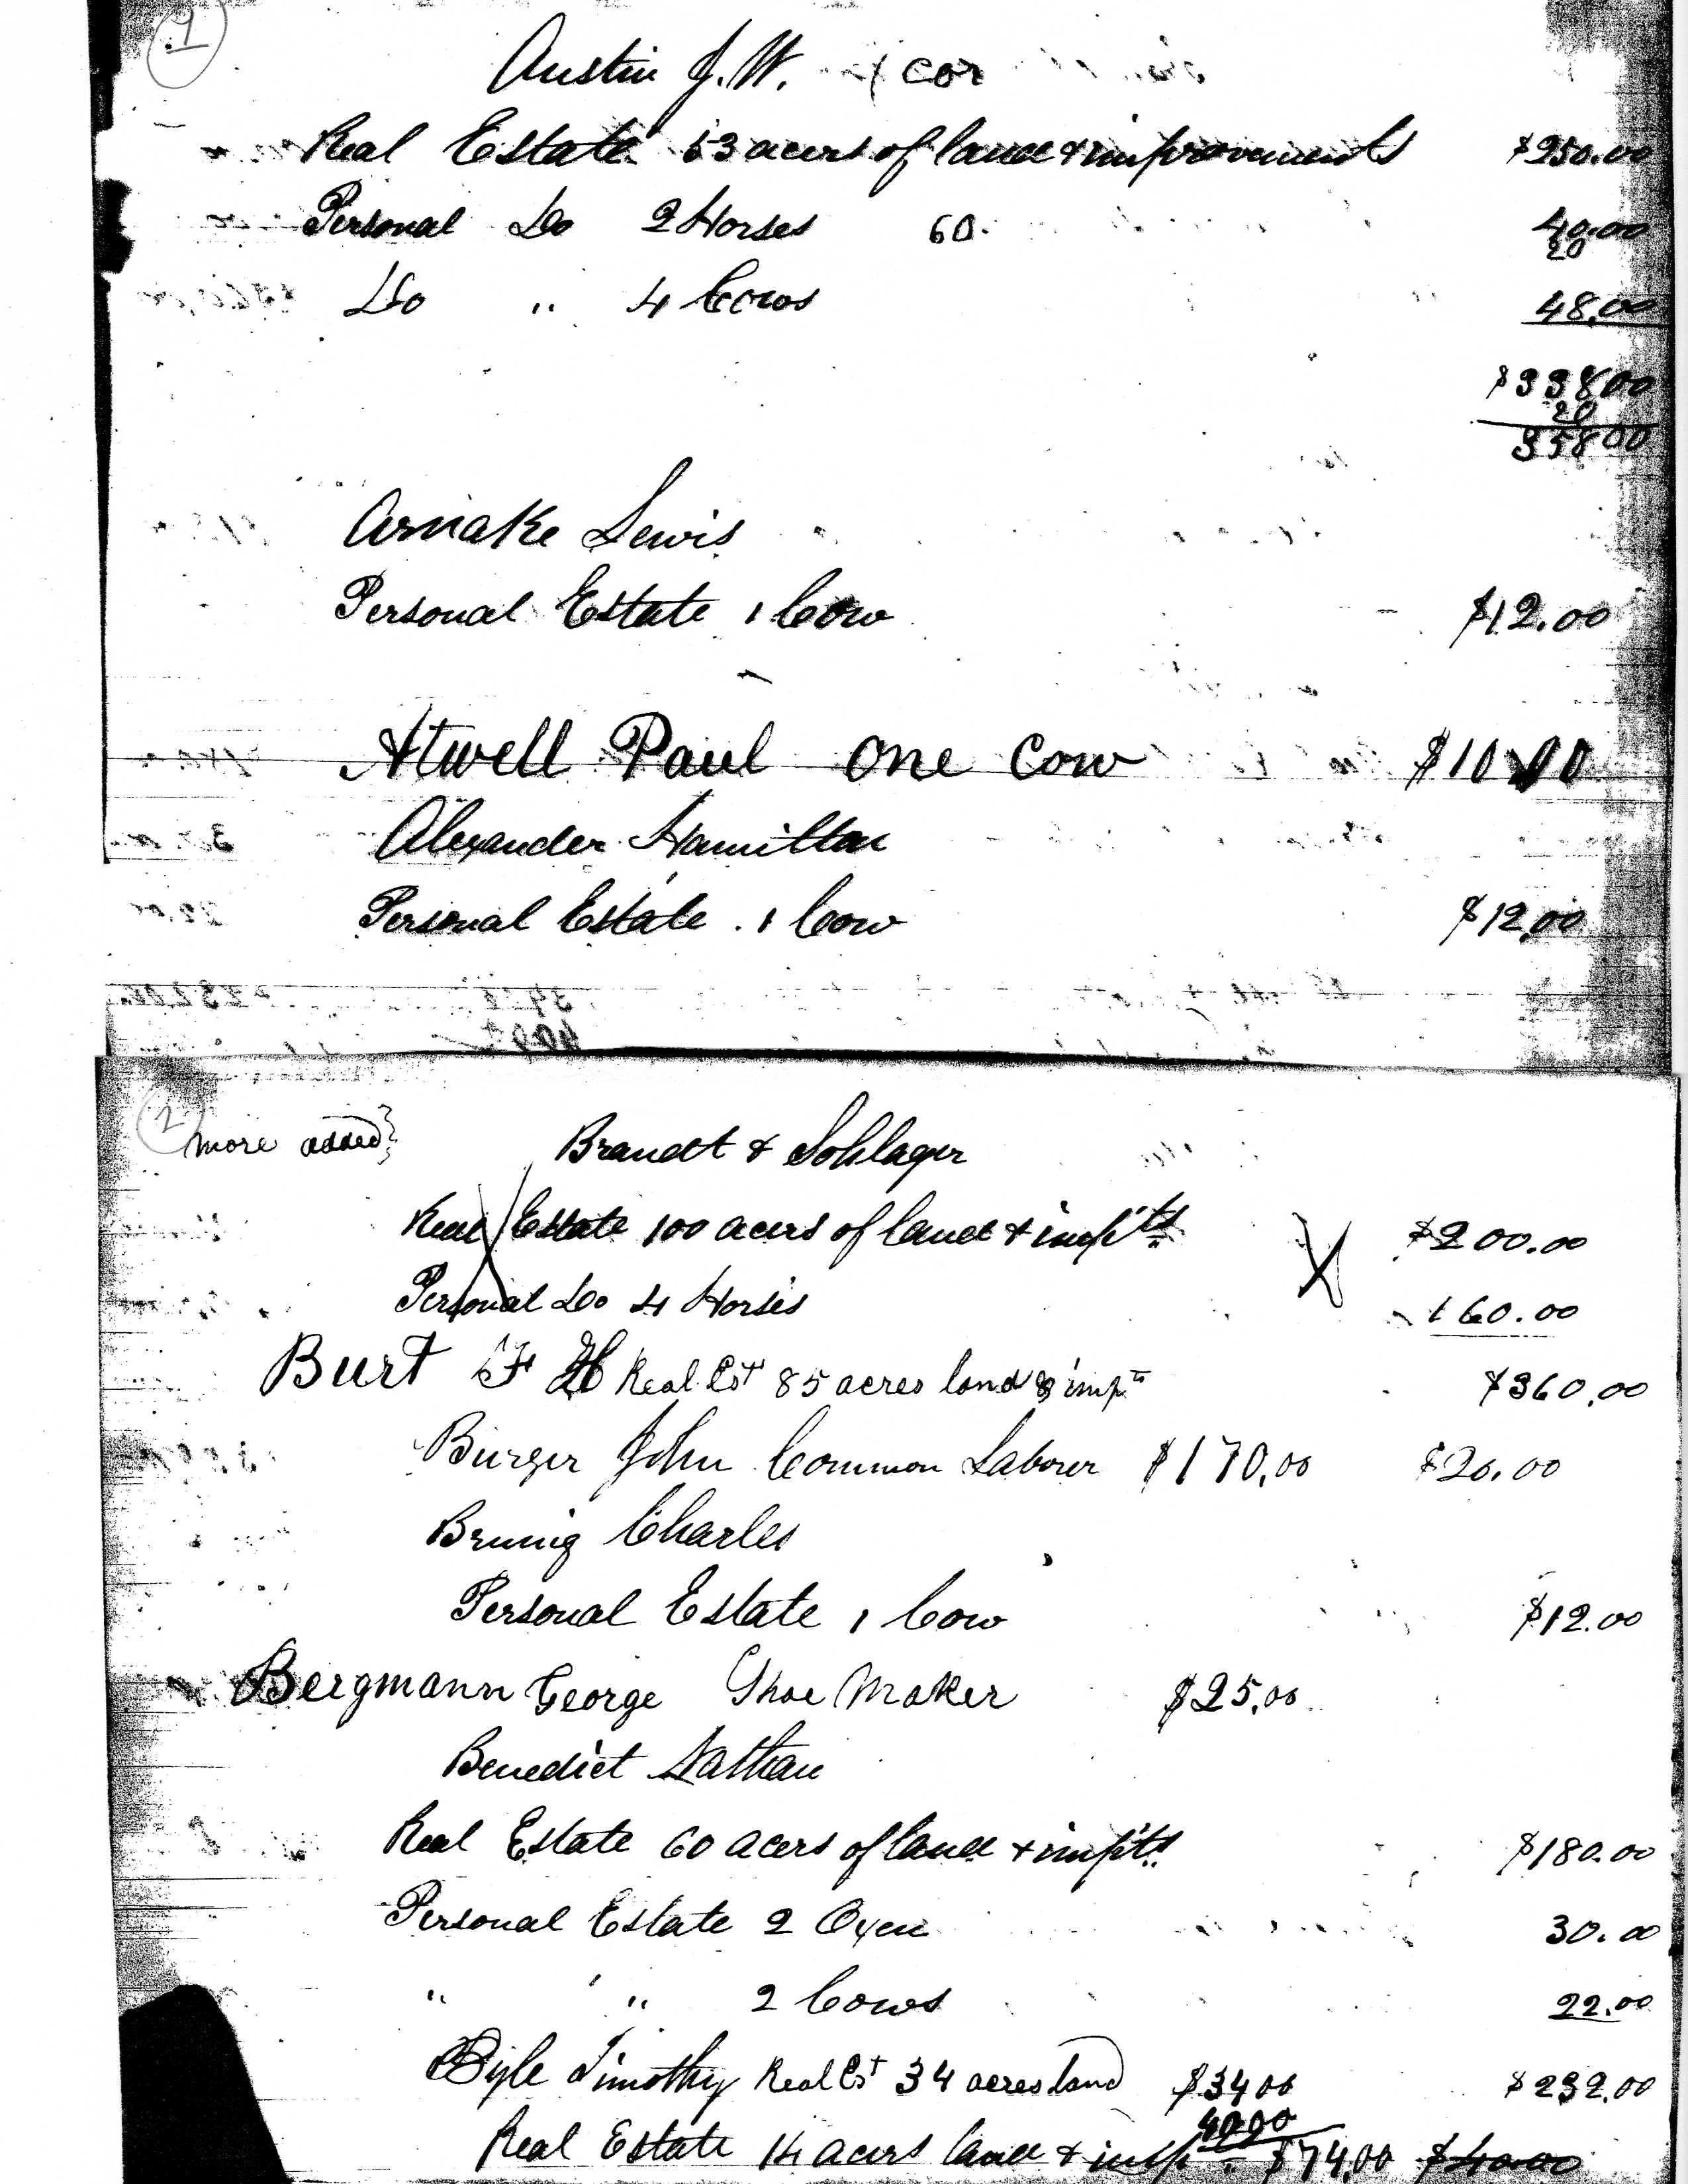 1
Austin J. W. cor
Real Estate 53 acers of land & improvements $250.00
Personal Do 2 Horses 60. 40.00
20
Do " 4 Cows 48.00
$338.00
20
358 00
Arnake Lewis
Personal Estate 1 Cow $12.00
Atwell Paul one Cow $10.00
Alexander Hamilton
Personal Estate . 1 Cow $12.00
2
more added
Brandt & Sohlager
Real Estate 100 acers of land & impts $200.00
Personal Do 4 Horses 160.00
Burt F H Real Est 85 acres land & impts $360.00
Burger John Common Laborer $170.00 $20.00
Bruning Charles
Personal Estate 1 Cow $12.00
Bergmann George Shoe Maker $25.00
Benedict Nathan
Real Estate 60 acers of land & impts $180.00
Personal Estate 2 Oxen 30.00
" " 2 Cows 22.00
Timothy Real Est 34 acres land $34 00 $232.00
40 00
Real Estate 14 acers land & imp $74.00 $40.00